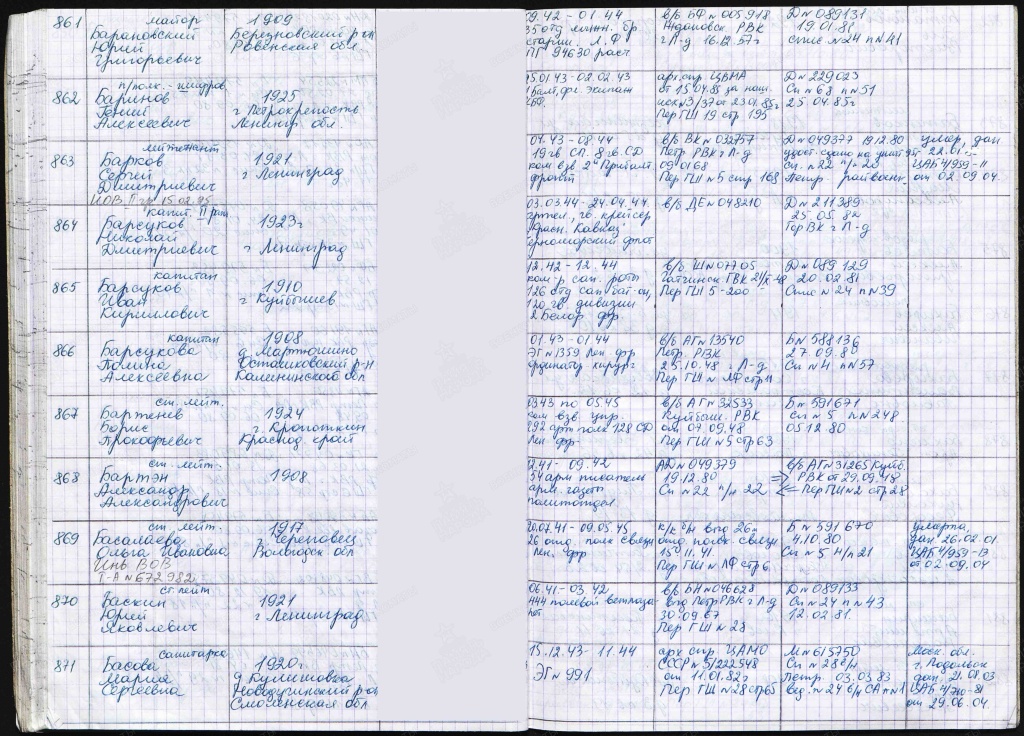 861 майор
Барановский
Юрий
Григорьевич
1909
Березновский р-н
Ровенская обл.
09.42 - 01.44
35 отд. бр
Л.Ф
ПГ 94630
в/б БФ N 005918
Ждановск РВК
г Л-д 16.12.57г
Д N 089131
19.01.81
спис N 24 п N 41
862 п/полк. -
Баринов
Гений
Алексеевич
1925
г Петрокрепость
Ленингр. обл.
15.01.43 - 08.02.43
Балт. фл. Экипаж
КБФ.
арх. спр. ЦВМА
от 15.04.85 за наш.
исх N 3/37 от 23.01.85г
Пер ГШ 19 стр 195
Д N 229023
Сп N 68 п N 51
25.04.85г
863 лейтенант
Барков
Сергей
Дмитриевич
ИОВ II гр 15.02.95
1921
г Ленинград
04.43 - 08.44
19 гв СП 8 гв. СД
ком взв 2й Прибалт
фронт
в/б ВК N 032757
Петр РВК г Л-д
09.01.68
Пер ГШ N 5 стр 168
Д N 049377 19.12.80
Сп. N 22 п/н 20
Петр. райвоенк.
умер, дан
ЦАБ 4/959-11
от 02.09.04
864 капит. II ранг
Барсуков
Николай
Дмитриевич
1923г
г Ленинград
03.03.44 - 24.04.44
гв. крейсер
Красн. Кавказ
Черноморский флот
в/б ДЕ N 048210
Д N 211389
25.05.82
ГорВК г Л-д
865 капитан
Барсуков
Иван
Кириллович
1910
г Куйбышев
12.42 - 12.44
ком-р сан. роты
126 отд сан. бат-он,
120 гв. дивизии
2 Белор фр.
в/б Ш N 07705
Гатчинск ГВК
Пер ГШ 5-200
Д N 089129
20.02.81
Спис N 24 п N 39
866 капитан
Барсукова
Полина
Алексеевна
1908
д. Мартюшино
Осташковский р-н
Калининского обл
01.43 - 01.44
ЭГ N 1359 Лен фр
ординатор хирург
в/б АГ N 13540
Петр. РВК
25.10.48 г Л-д
Пер ГШ N ЛФ стр 11
Б N 588136
27.09.80
Сп N 4 п N 57
867 ст. лейт.
Бартенев
Борис
Прокофьевич
1924
г. Кропоткин
Краснод. край
0343 по 0545
ком взв. упр.
892 арт полк 128 СД
Лен фр
в/б АГ N 32533
Куйбыш. РВК
от 07.09.48
Пер ГШ N 5 стр 63
Б N 591671
Сп N 5 п N 248
05.12.80
868 ст. лейт.
Бартэн
Александр
Александрович
1908
12.41 - 09.42
54 арм писатель
арм. газеты
политотдел
АД N 049379
19.12.80
Сп N 22 п/н 22
в/б АГ N 31265 Куйб.
РВК от 29.09.48
Пер ГШ N 2 стр 28
869 ст. лейт.
Басалаева
Ольга Ивановна
Инв ВОВ
Т-А N 672982
1917
г Череповец
Вологодск обл
20.07.41 - 09.05.45
26 отд. полк связи
Лен. фр
к/к б/н выд 26м
отд. полк. связи
15.11.41
Пер ГШ N ЛФ стр 6
Б N 591670
4.10.80
Сп N 5 н/п 21
умерла,
дан 26.02.01
ЦАБ 4/959-13
от 02-09.04
870 ст лейт
Баскин
Юрий
Яковлевич
1921
г Ленинград
06.41 - 03.42
444 полевой ветлаза-
рет
в/б БН N 046628
выд Петр РВК г Л-д
30.09.67
Пер ГШ N 28
Д N 089133
Сп N 24 п N 43
12.02.81
871 санитарка
Басова
Мария
Сергеевна
1920г
д Кулишовка
Новодугинский р-он
Смоленская обл
15.12.43 - 11.44
ЭГ 991
арх спр ЦАМО
СССР N 5/222548
от 11.01.82г
Пер ГШ N 28 стр 65
М N 615750
Сп N 28 б/н
Петр. 03.03.83
вед. N 24 б/н СА п N 1
Моск. обл.
г. Подольск
дан. 21.08.03
от 29.06.04